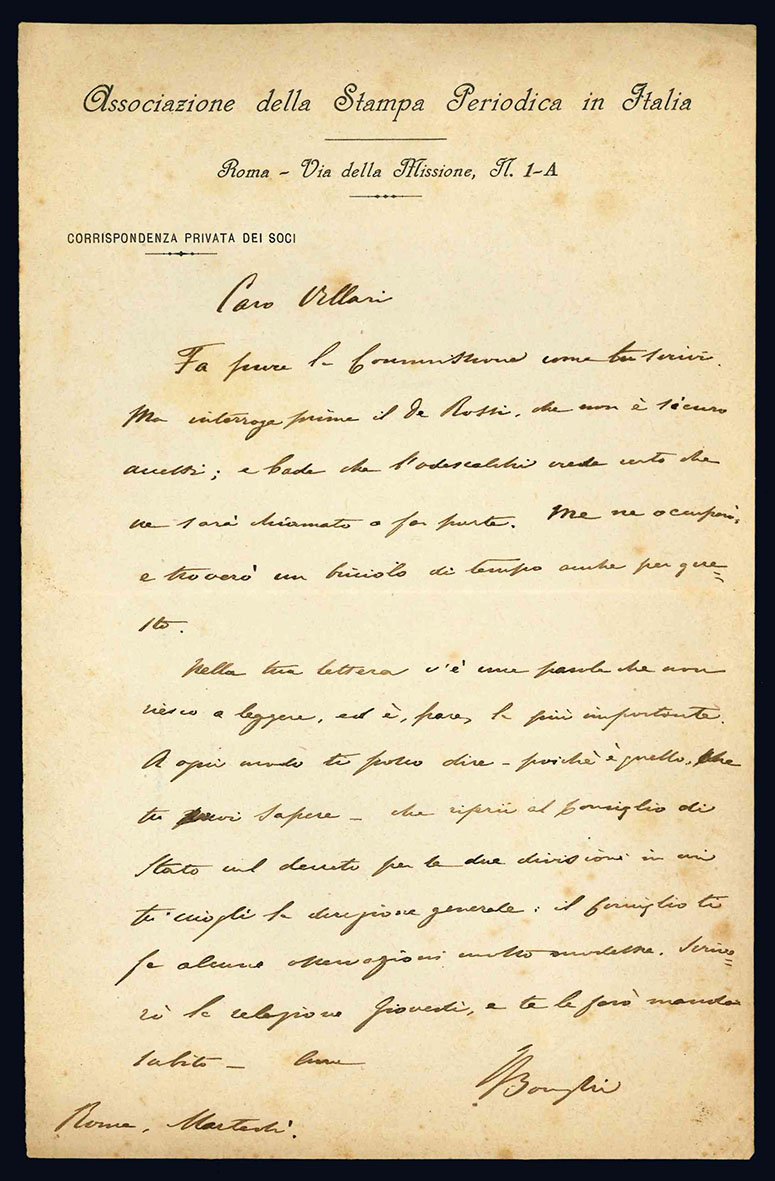 Associazione della Stampa Periodica in Italia
Roma - Via della Missione, N. 1-A
CORRISPONDENZA PRIVATA DEI SOCI
Caro Villari
Fa pure la Commissione come tu scrivi.
Ma interroga prima il De Rossi, che non è sicuro
accetti; e bada che l'Odescalchi crede certo che
ne sarà chiamato a far parte. Me ne occuperò,
e troverò un briciolo di tempo anche per que=
sto.
Nella tua lettera c'è una parola che non
riesco a leggere, ed è, pare, la più importante.
A ogni modo ti posso dire - poichè è quello, che
tu vuoi sapere - che riferii al Consiglio di
Stato sul decreto per le due divisioni in cui
tu sciogli la direzione generale: il Consiglio ti
fa alcune osservazioni molto modeste. Scrive=
rò la relazione Giovedì, e te la farò mandar
subito -
Bonghi
Roma, Martedì.